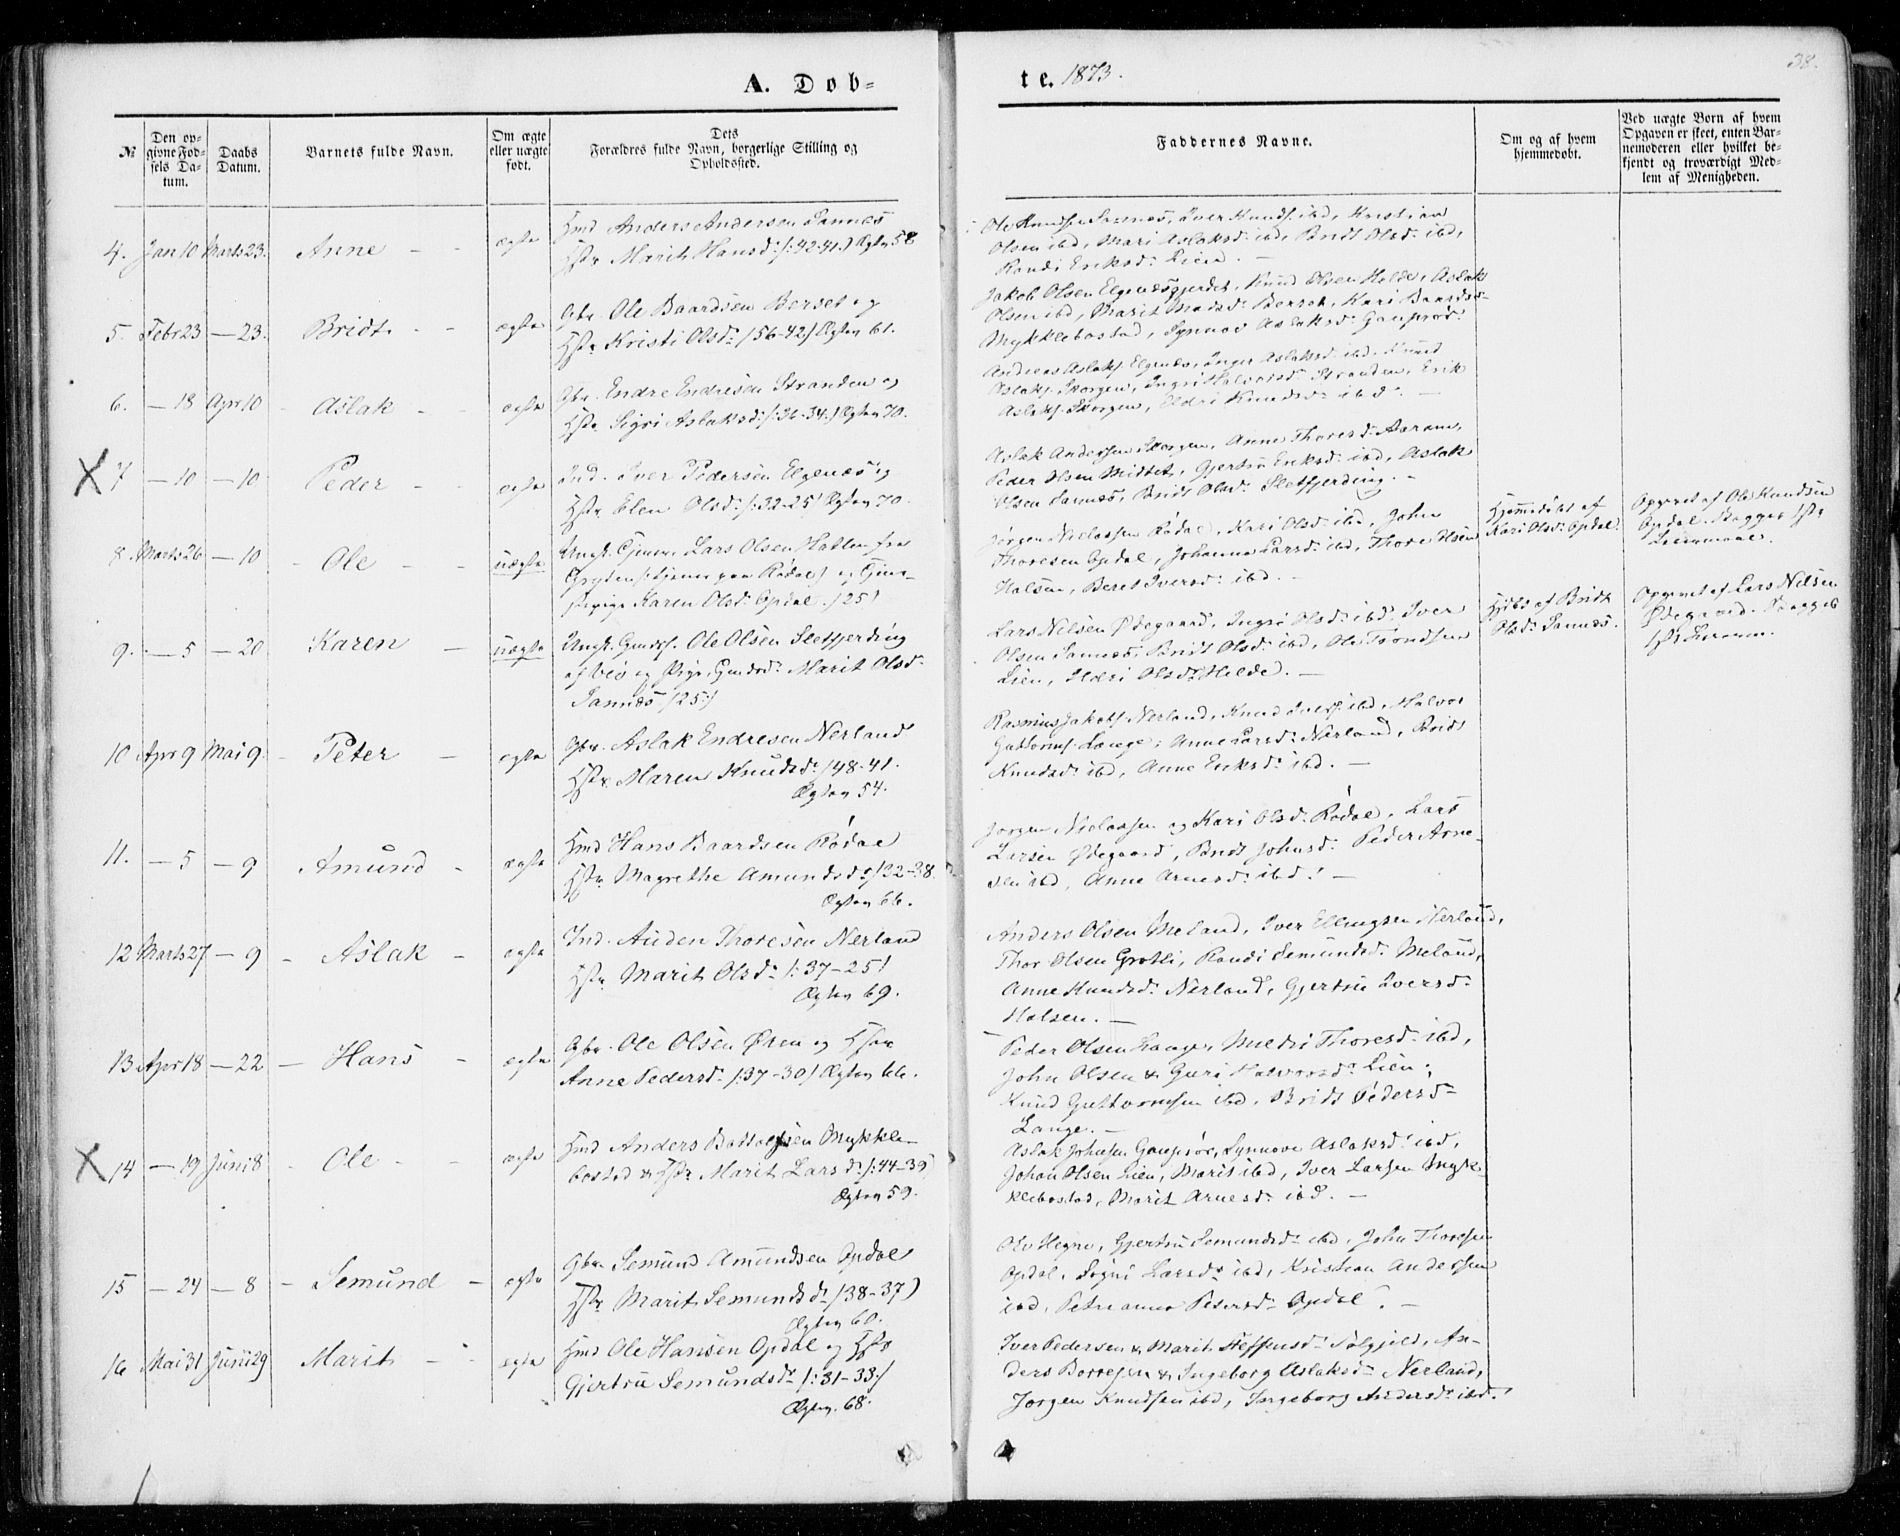 38.
A. Døbte. 1873.
№
Den opgivne Fødsels Datum.
Daabs Datum.
Barnets fulde Navn.
Om ægte eller uægte født.
Dets Forældres fulde Navn, borgerlige Stilling og Opholdssted.
Faddernes Navne.
Om og af hvem hjemmedøbt.
Ved uægte Børn af hvem Opgaven er skeet, enten Barnemoderen eller hvilket bekjendt og troværdigt Medlem af Menigheden.
4. Jan 10 Marts 23. Anne - - ægte
Hmd Anders Andersen Sannes
Hstr Marit Hansd: /:42-41.) Ægtev 58
Ole Knudsen Sannes, Iver Knuds. ibd, Kristian
Olsen ibd, Mari Aslaksd: ibd, Bridt Olsd: ibd,
Randi Eriksd: Lien. -
5. Febr 23 - 23. Bridt. - - ægte
Gbr. Ole Baardsen Berset og
Hstr Kristi Olsd: /56-42/ Ægtev 61.
Jakob Olsen Elgenæsgjerdet, Knud Olsen Holde, Aslak
Olsen ibd, Marit Madsd: Berset, Kari Baardsd:
Mykklebostad, Synnøv Aslaksd: Gauprør.
6. - 18 Apr 10 - Aslak - - ægte
Gbr. Endre Endresen Stranden og
Hstr Sigri Aslaksd: /:36-34./ Ægtev 70.
Andreas Aslaks. Elgenæs, Inger Aslaksd: ibd, Knud
Aslaks. Skorgen, Ingri Halvorsd: Stranden, Erik
Aslaks. Skorgen, Eldri Knudsd: ibd. -
X 7 - 10 - 10 Peder - - ægte
Ind. Iver Pedersen Elgenæs og
Hstr Elen Olsd: /:32-25/ Ægtev 70.
Aslak Andersen Skorgen, Anne Thoresd: Aaram,
Peder Olsen Midtet, Gjertru Eriksd: ibd, Aslak
Olsen Sannes, Bridt Olsd: Sletfjerding. -
8. Marts 26 - 10 - Ole - - uægte
Ungk. Tjener Lars Olsen Hatlen fra
Grytten (tjener paa Rødal) og Tjene-
stepige Karen Olsd: Opdal. /25/
Jørgen Nielssen Rødal, Kari Olsd: ibd, John
Thoresen Opdal, Johanna Larsd: ibd, Thore Olsen
Halsen, Beret Iversd: ibd. -
Hjemmedøbt af
Kari Olsd: Opdal.
Opgivet af Ole Knudsen
Opdal. Begges 1ste
Leiermaal.
9. - 5 - 20 Karen - uægte
Ungk. Gaards. Ole Olsen Sletfjerding
af Veø og Pige, Gaardsd: Marit Olsd:
Sannes /25:/
Lars Nilsen Ødegaard, Ingri Olsd: ibd: Iver
Olsen Sannes, Bridt Olsd: ibd, Ole Trondsen
Lien, Eldri Olsd: Hilde. -
Hjdbt af Bridt
Olsd: Sannes.
Opgivet af Lars Nilsen
Ødegaard. Begges
1ste Leierm.
10 Apr 9 Mai 9 - Peter - ægte
Gbr. Aslak Endresen Nerland
Hstr. Maren Knudsd: /48-41.
Ægtev 54.
Rasmus Jakobs. Nerland, Knud Ivers. ibd, Halvor
Guttorms. Lange, Anne Larsd: Nerland, Bridt
Knudsd: ibd, Anne Eriksd: ibd. -
11. - 5 - 9 Amund - ægte
Hmd Hans Baardsen Rødal
Hstr Magrethe Amundsd: /32-38.
Ægtev 66.
Jørgen Nielssen og Kari Olsd: Rødal, Lars
Larsen Ødegaard, Bridt Johnsd: Peder Arne-
sen ibd, Anne Arnesd: ibd. -
12 Marts 27 - 9 - Aslak - ægte
Ind. Auden Thoresen Nerland
Hstr Marit Olsd: /:37-25/
Ægtev 69.
Anders Olsen Meland, Iver Ellingsen Nerland,
Thor Olsen Grøtli, Randi Semundsd: Meland,
Anne Knudsd: Nerland, Gjertru Iversd:
Halsen. -
13 Apr 18 - 22 - Hans - ægte
Gbr. Ole Olsen Øren og Hstr
Anne Pedersd: /:37-30/ Ægtev 66.
Peder Olsen Lange, Mildri Thoresd: ibd,
John Olsen & Guri Halvorsd: Lien,
Knud Guttormsen ibd, Bridt Pedersd:
Lange. -
X 14 - 19 Juni 8 - Ole - - ægte
Hmd Anders Bottolfsen Mykkle-
bostad & Hstr Marit Larsd: /:44-39
Ægtev 59.
Aslak Johnsen Gauprør, Synnøve Aslaksd: ibd,
Johan Olsen Lien, Marit ibd, Iver Larsen Myk-
klebostad, Marit Arnesd: ibd. -
15 - 24 - 8 - Semund - ægte
Gbr. Semund Amundsen Opdal
Hstr Marit Semundsd: /38-37)
Ægtev 60.
Ole Hegne, Gjertru Semundsd: ibd, John Thoresen
Opdal, Sigri Larsd: ibd, Kristian Andersen
ibd, Petrianna Petersd: Opdal. -
16 Mai 31 Juni 29 Marit - - ægte
Hmd Ole Hansen Opdal og Hstr
Gjertru Semundsd: /:31-33:/
Ægtev. 68.
Iver Pedersen & Marit Steffensd: Sølgjeld, An-
ders Borresen & Ingeborg Aslaksd: Nerland,
Jørgen Knudsen ibd, Ingeborg Andersd: ibd.